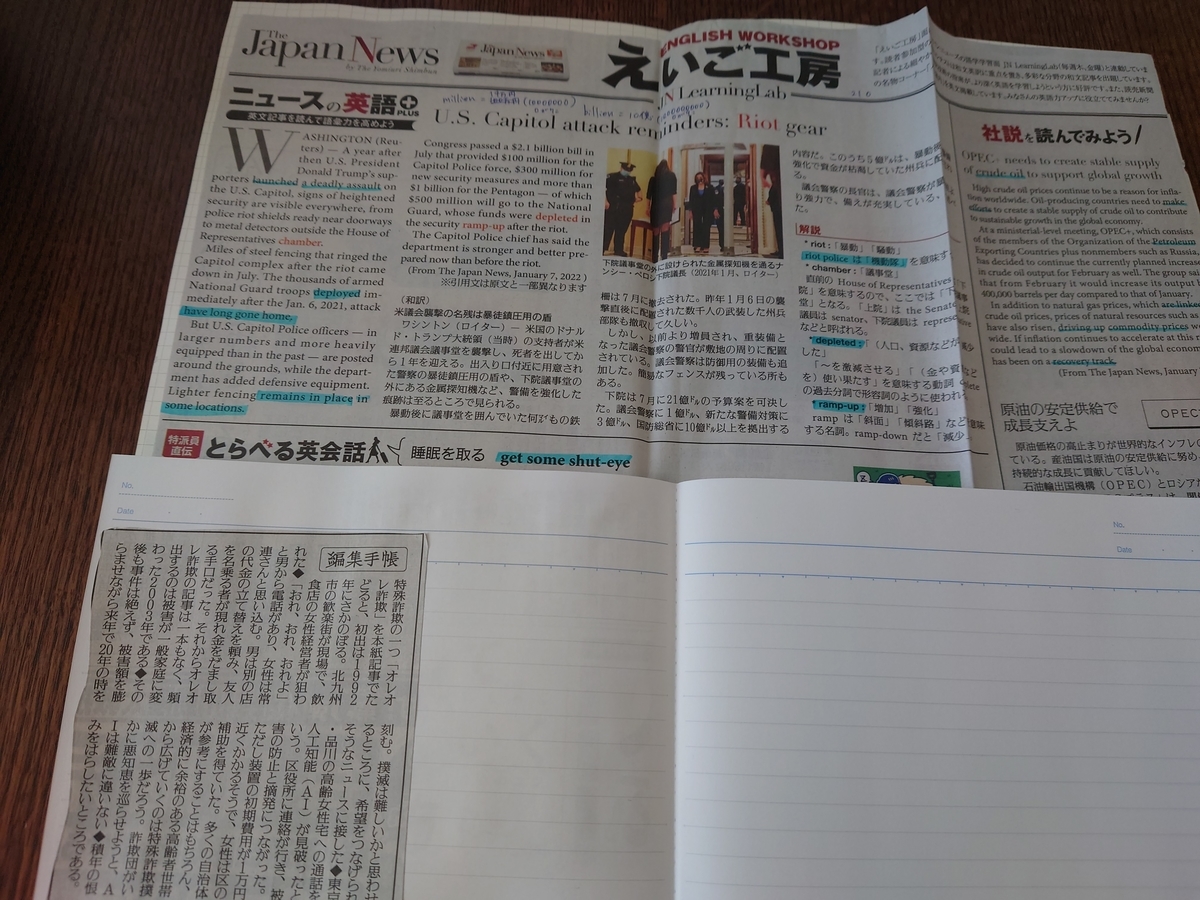 The
Japan News
by The Yomiuri Shimbun
ENGLISH WORKSHOP
えいご工房
JN LearningLab
ニュースの英語+PLUS
英文記事を読んで語彙力を高めよう
U.S. Capitol attack reminders: Riot gear
WASHINGTON (Reu-
ters) — A year after
then U.S. President
Donald Trump's sup-
porters launched a deadly assault on
the U.S. Capitol, signs of heightened
security are visible everywhere, from
police riot shields ready near doorways
to metal detectors outside the House of
Representatives chamber.
Miles of steel fencing that ringed the
Capitol complex after the riot came
down in July. The thousands of armed
National Guard troops deployed im-
mediately after the Jan. 6, 2021, attack
have long gone home.
But U.S. Capitol Police officers — in
larger numbers and more heavily
equipped than in the past — are posted
around the grounds, while the depart-
ment has added defensive equipment.
Lighter fencing remains in place in
some locations.
Congress passed a $2.1 billion bill in
July that provided $100 million for the
Capitol Police force, $300 million for
new security measures and more than
$1 billion for the Pentagon — of which
$500 million will go to the National
Guard, whose funds were depleted in
the security ramp-up after the riot.
The Capitol Police chief has said the
department is stronger and better pre-
pared now than before the riot.
(From The Japan News, January 7, 2022)
※引用文は原文と一部異なります
(和訳)
米議会襲撃の名残は暴徒鎮圧用の盾
ワシントン(ロイター)— 米国のドナル
ド・トランプ大統領(当時)の支持者が米
連邦議会議事堂を襲撃し、死者を出してか
ら1年を迎える。出入り口付近に用意され
た警察の暴徒鎮圧用の盾や、下院議事堂の
外にある金属探知機など、警備を強化した
痕跡は至るところで見られる。
暴動後に議事堂を囲んでいた何㌔もの鉄
柵は7月に撤去された。昨年1月6日の襲
撃直後に配置された数千人の武装した州兵
部隊も撤収して久しい。
しかし、以前より増員され、重装備と
なった議会警察の警官が敷地の周りに配置
されている。議会警察は防御用の装備も追
加した。簡易なフェンスが残っている所も
ある。
下院は7月に21億㌦の予算案を可決し
た。議会警察に1億㌦、新たな警備対策に
3億㌦、国防総省に10億㌦以上を拠出する
内容だ。このうち5億㌦は、暴動後
強化で資金が枯渇していた州兵に配
る。
議会警察の長官は、議会警察が
り強力で、備えが充実している
た。
解説
*riot:「暴動」「騒動」
riot police は「機動隊」を意味す
*chamber:「議事堂」
*depleted:「(人口、資源などが)減少
した」
「〜を激減させる」「(金や資
を)使い果たす」を意味する動詞
の過去分詞で形容詞のように使われ
*ramp-up:「増加」「強化」
ramp は「斜面」「傾斜路」など
する名詞。ramp-down だと「減少」
社説を読んでみよう!
OPEC+ needs to create stable supply
of crude oil to support global growth
High crude oil prices continue to be a reason for infla-
tion worldwide. Oil-producing countries need to make
efforts to create a stable supply of crude oil to contribute
to sustainable growth in the global economy.
At a ministerial-level meeting, OPEC+, which consists
of the members of the Organization of the Petroleum
Exporting Countries plus nonmembers such as Russia,
has decided to continue the currently planned increase
in crude oil output for February as well. The group sa
that from February it would increase its output b
400,000 barrels per day compared to that of January.
In addition to natural gas prices, which are linked
crude oil prices, prices of natural resources such as
have also risen, driving up commodity prices
wide. If inflation continues to accelerate at this r
could lead to a slowdown of the global econom
has been on a recovery track.
(From The Japan News, January
原油の安定供給で
成長支えよ
OPEC
原油価格の高止まりが世界的なインフレの
ている。産油国は原油の安定供給に努め、
持続的な成長に貢献してほしい。
石油輸出国機構(OPEC)とロシア
特派員
直伝
とらべる英会話
睡眠を取る get some shut-eye
No.
Date
No.
Date
編集手帳
特殊詐欺の一つ「オレオ
レ詐欺」を本紙記事でた
どると、初出は1992
年にさかのぼる。北九州
市の歓楽街が現場で、飲
食店の女性経営者が狙わ
れた◆「おれ、おれ、おれよ」
と男から電話があり、女性は常
連さんと思い込む。男は別の店
の代金の立て替えを頼み、友人
を名乗る者が現れ金をだまし取
る手口だった。それからオレオ
レ詐欺の記事は一本もなく、頻
出するのは被害が一般家庭に変
わった2003年である◆その
後も事件は絶えず、被害額を膨
らませながら来年で20年の時を
刻む。撲滅は難しいかと思わせ
るところに、希望をつなげられ
そうなニュースに接した◆東京
・品川の高齢女性宅への通話を
人工知能(AI)が見破ったと
いう。区役所に連絡が行き、被
害の防止と摘発につながった。
ただし装置の初期費用が1万円
近くかかるそうで、女性は区の
補助を得ていた。多くの自治体
が参考にすることはもちろん、
経済的に余裕のある高齢者世帯
から広げていくのは特殊詐欺撲
滅への一歩だろう。詐欺団がい
かに悪知恵を巡らせようと、A
Iは難敵に違いない◆積年の恨
みをはらしたいところである。